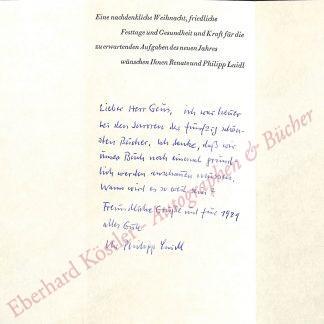 Eine nachdenkliche Weihnacht, friedliche
Festtage und Gesundheit und Kraft für die
zu erwartenden Aufgaben des neuen Jahres
wünschen Ihnen Renate und Philipp Luidl
Lieber Herr Geus, ich war heuer
bei den Juroren der fünfzig schön-
sten Bücher. Ich denke, daß wir
unser Buch noch einmal gründ-
lich werden anschauen müssen.
Wann wird es so weit sein?
Freundliche Grüße und für 1981
alles Gute
Ihr Philipp Luidl
Eberhard Köstler - Autographen & Bücher